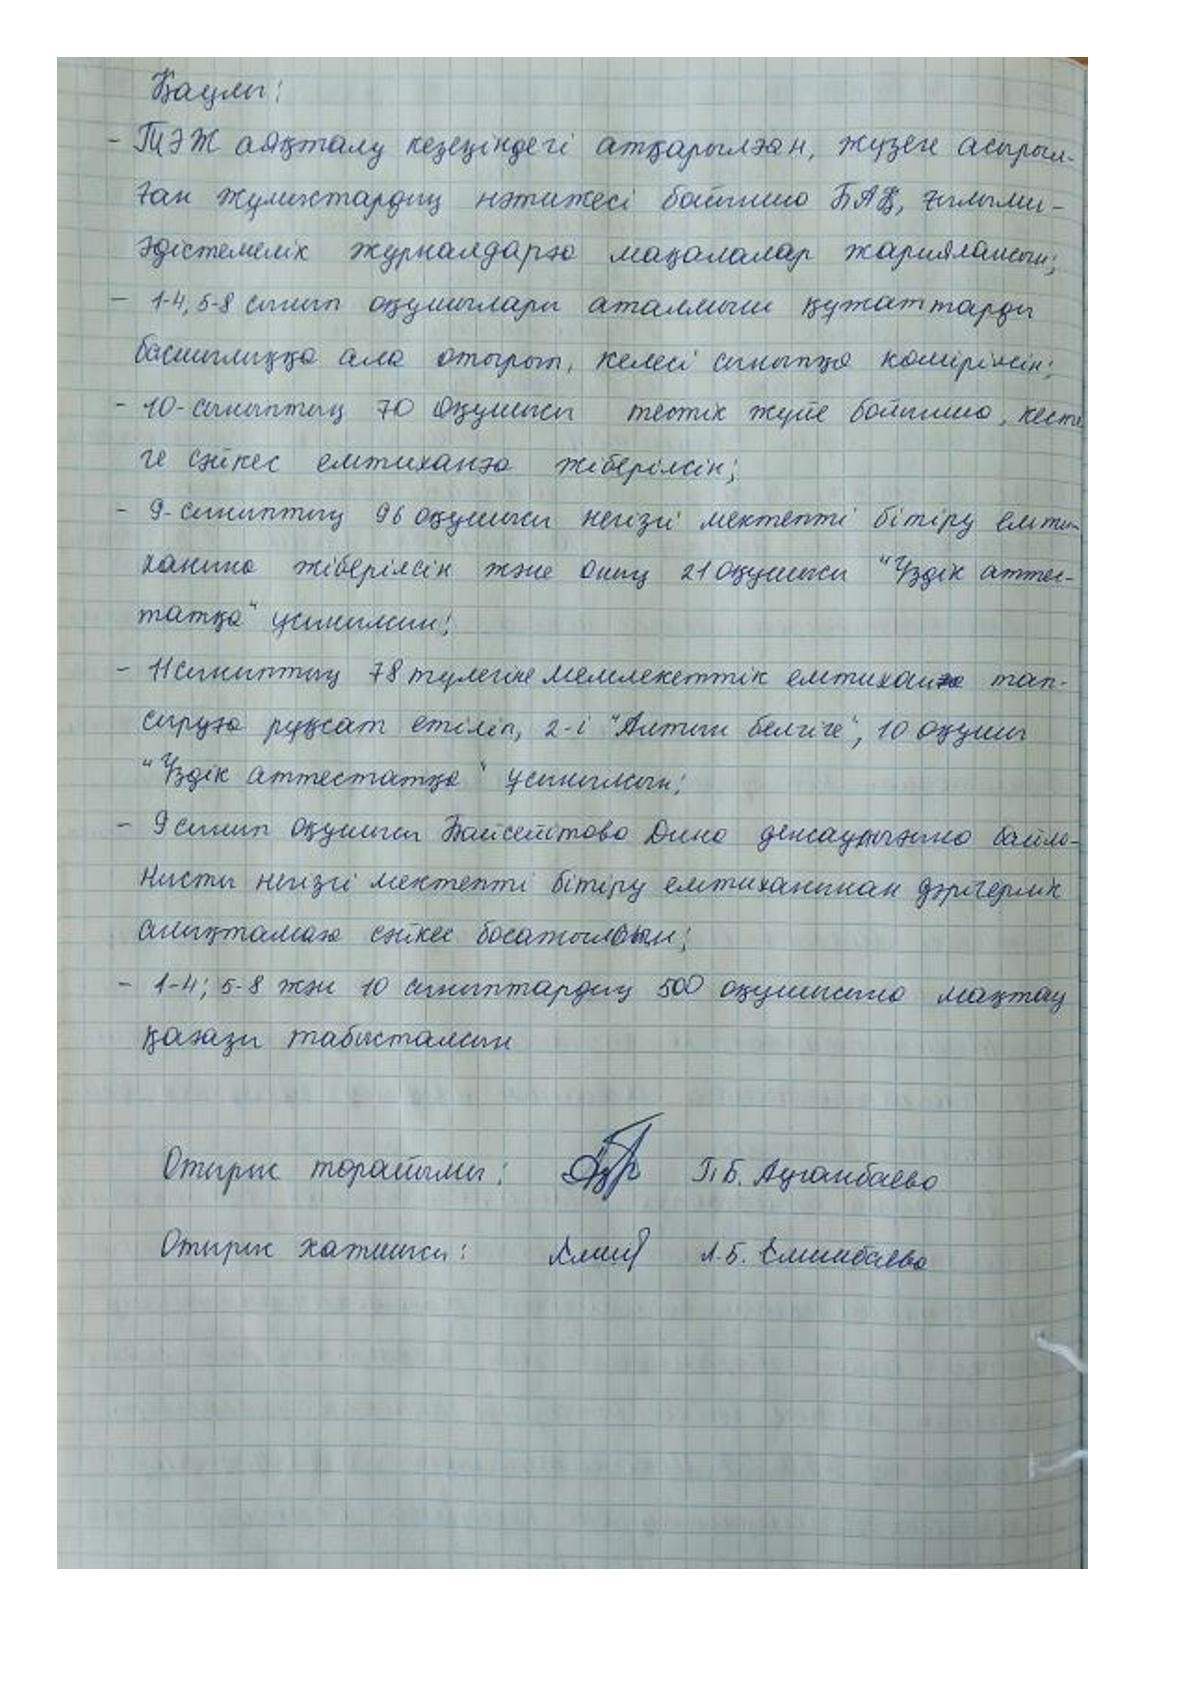 Қаулы:
- ТЭЖ аяқталу кезеңіндегі атқарылған, жүзеге асырыл-
ған жұмыстардың нәтижесі бойынша БАҚ, ғылыми-
әдістемелік журналдарға мақалалар жариялансын;
- 1-4, 5-8 сынып оқушылары аталмыш құжаттарды
басшылыққа ала отырып, келесі сыныпқа көшірілсін;
- 10-сыныптың 70 оқушысы тестік жүйе бойынша, кесте
ге сәйкес емтиханға жіберілсін;
- 9-сыныптың 96 оқушысы негізгі мектепті бітіру емти-
ханына жіберілсін және оның 21 оқушысы "Үздік аттес-
татқа" ұсынылсын;
- 11 сыныптың 78 түлегіне мемлекеттік емтиханға тап-
сыруға рұқсат етіліп, 2-і "Алтын белгіге", 10 оқушы
"Үздік аттестатқа" ұсынылсын;
- 9 сынып оқушысы Байсейтова Дина денсаулығына байла-
нысты негізгі мектепті бітіру емтиханынан дәрігерлік
анықтамаға сәйкес босатылсын;
- 1-4; 5-8 және 10 сыныптардың 500 оқушысына мақтау
қағазы табысталсын
Отырыс төрайымы: Г.Б. Ауганбаева
Отырыс хатшысы: Л.Б. Елшибаева